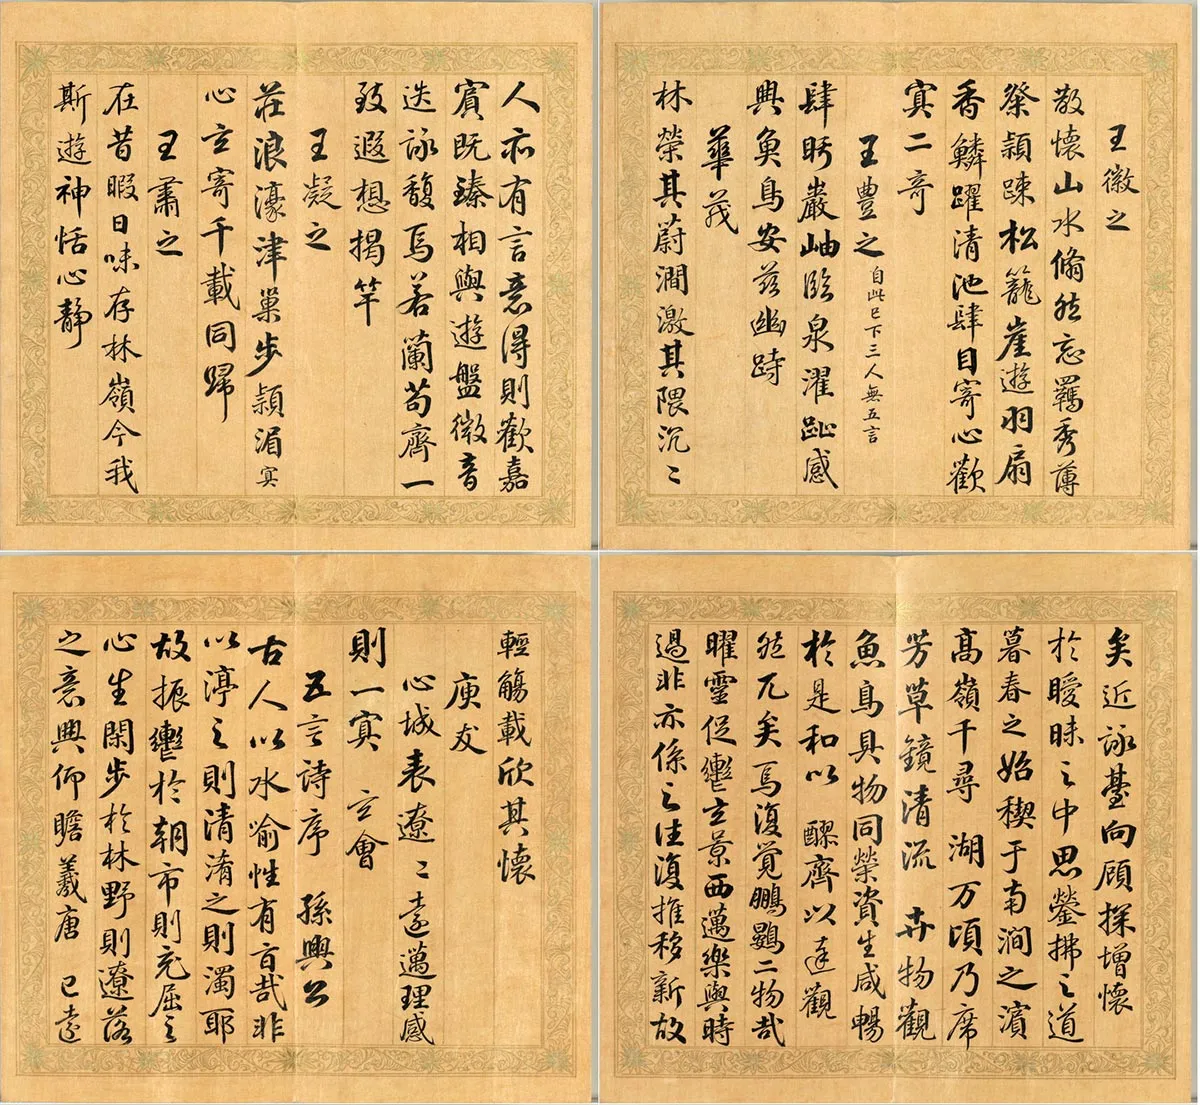 人亦有言意得則歡嘉
賓既臻相與遊盤微音
迭詠馥焉若蘭苟齊一
致遐想揭竿
王凝之
莊浪濠津巢步潁湄冥
心玄寄千載同歸
王肅之
在昔暇日味存林嶺今我
斯遊神恬心靜
王徽之
散懷山水翛然忘羈秀薄
粲穎踈松籠崖遊羽扇
香鱗躍清池肆目寄心歡
冥二奇
王豐之 自此已下三人無五言
肆眄巖岫臨泉濯趾感
興魚鳥安茲幽跱
華茂
林榮其蔚澗激其隈沉〻
輕觴載欣其懷
庾友
心城表遼〻遠邁理感
則一冥 玄會
五言詩序 孫興公
古人以水喻性有旨哉非
以渟之則清淆之則濁耶
故振轡於朝市則充屈之
心生閑步於林野則遼落
之意興仰瞻羲唐 已遠
矣近詠臺向顧探增懷
於曖昧之中思鎣拂之道
暮春之始禊于南澗之濱
高嶺千尋 湖万頃乃席
芳草鏡清流 卉物觀
魚鳥具物同榮資生咸暢
於是和以 醪齊以達觀
然兀矣焉復覚鵬鷃二物哉
曜靈促轡玄景西邁樂與時
過非亦係之往復推移新故